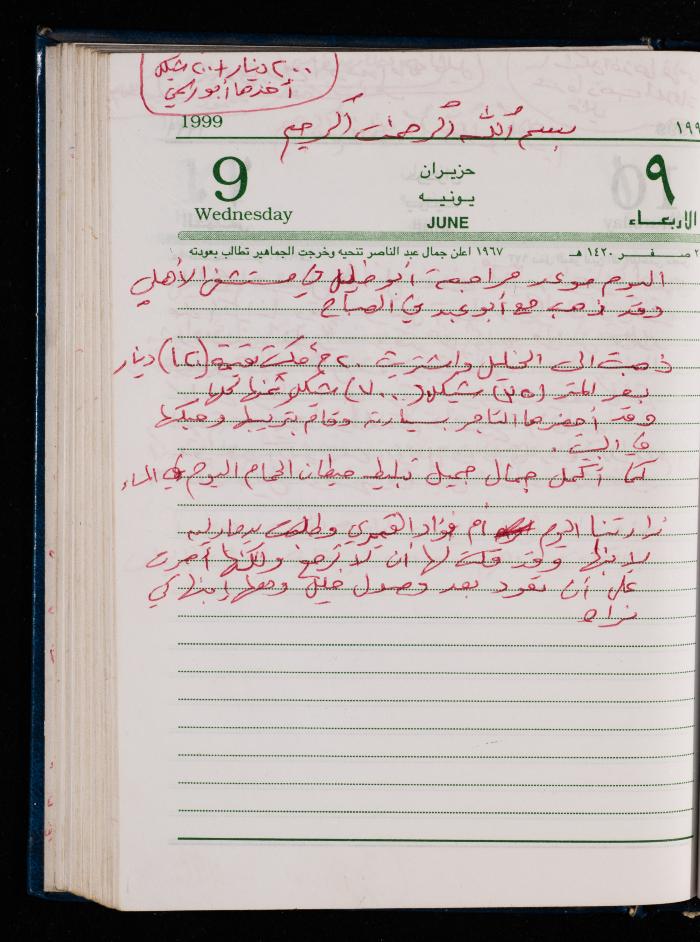 ٢٠٠٠ دينار + ٢٠٠ شيكل
أخذها أبو رامي
بسم الله الرحمن الرحيم
1999
١٩٩
9
Wednesday
حزيران
يونيه
JUNE
٩
الأربعاء
صفر ١٤٢٠ هـ
١٩٦٧ اعلن جمال عبد الناصر تنحيه وخرجت الجماهير تطالب بعودته
اليوم موعد مراجعة أبو خليل في مستشفى الأهلي
وقد ذهب مع أبو عبدي الصباح
ذهبت الى الخليل واشتريت ٢٠٠ م بقيمة دينار
بسعر المتر (٣٥) شيكل (٧٠٠) شيكل ثمنها كلها
وقد أحضرها التاجر بسيارته وقام بتركيبها
في البيت .
كما أكمل جمال جميل تبليط حيطان الحمام اليوم في المساء
زارتنا اليوم أم فؤاد القيمري وطلبت
لابنها وقد قلت لها أن لا ولكنها أصرت
على أن تعود بعد وصول خليل ومعها إبنها كي
نراه